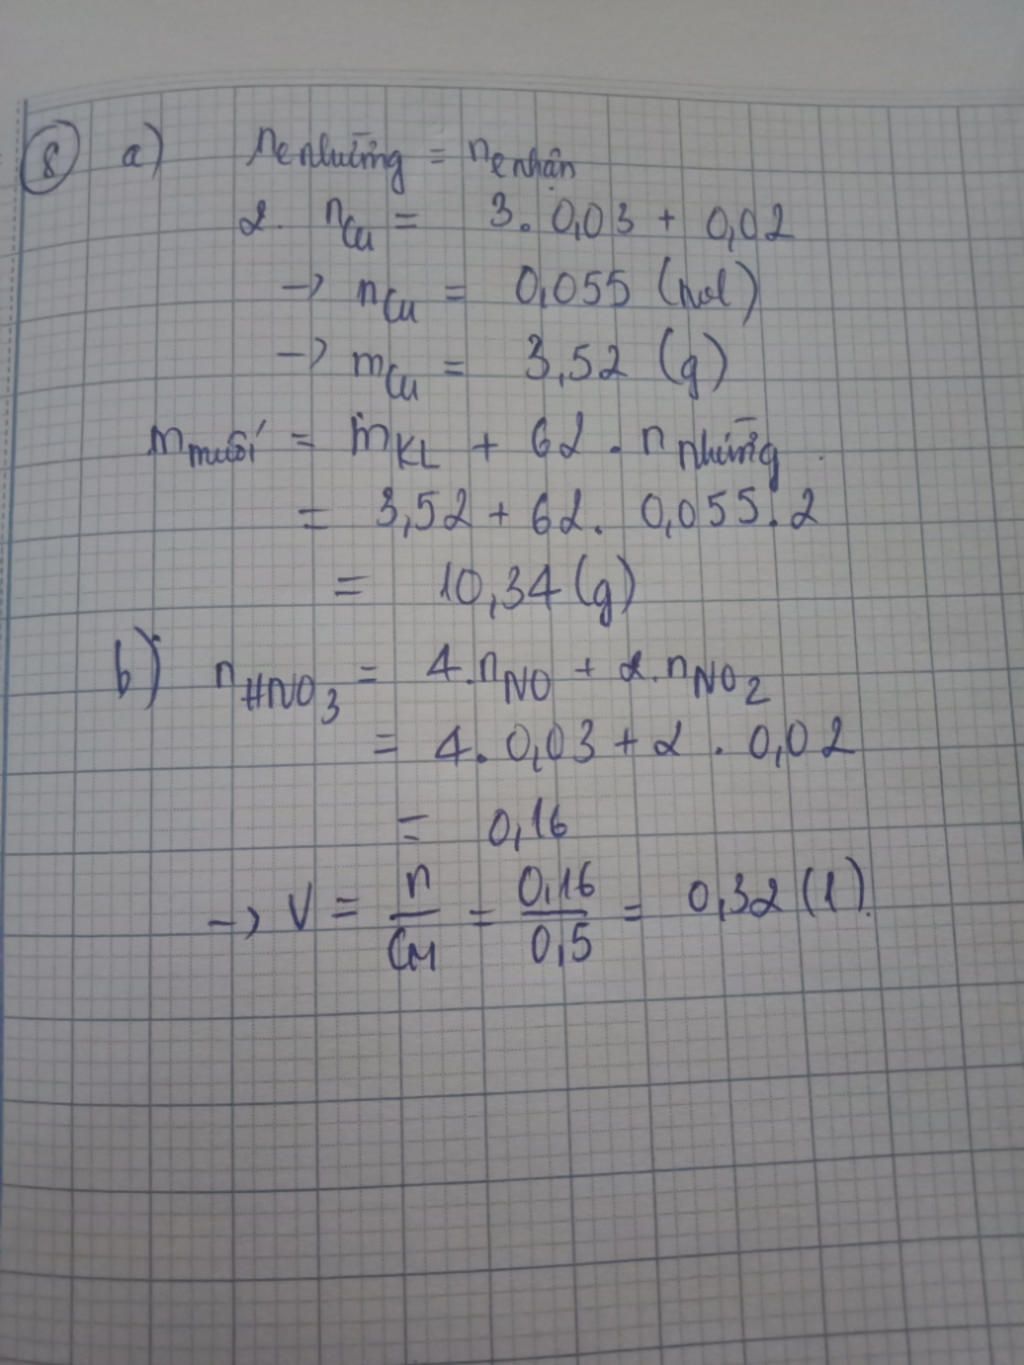 8 a) ne nhường = ne nhận
2. nCu = 3. 0,03 + 0,02
-> nCu = 0,055 (mol)
-> mCu = 3,52 (g)
m muối = mKL + 62 . n nhường
= 3,52 + 62. 0,055.2
= 10,34 (g)
b) nHNO3 = 4.nNO + 2.nNO2
= 4. 0,03 + 2 . 0,02
= 0,16
-> V = n/CM = 0,16/0,5 = 0,32 (l).